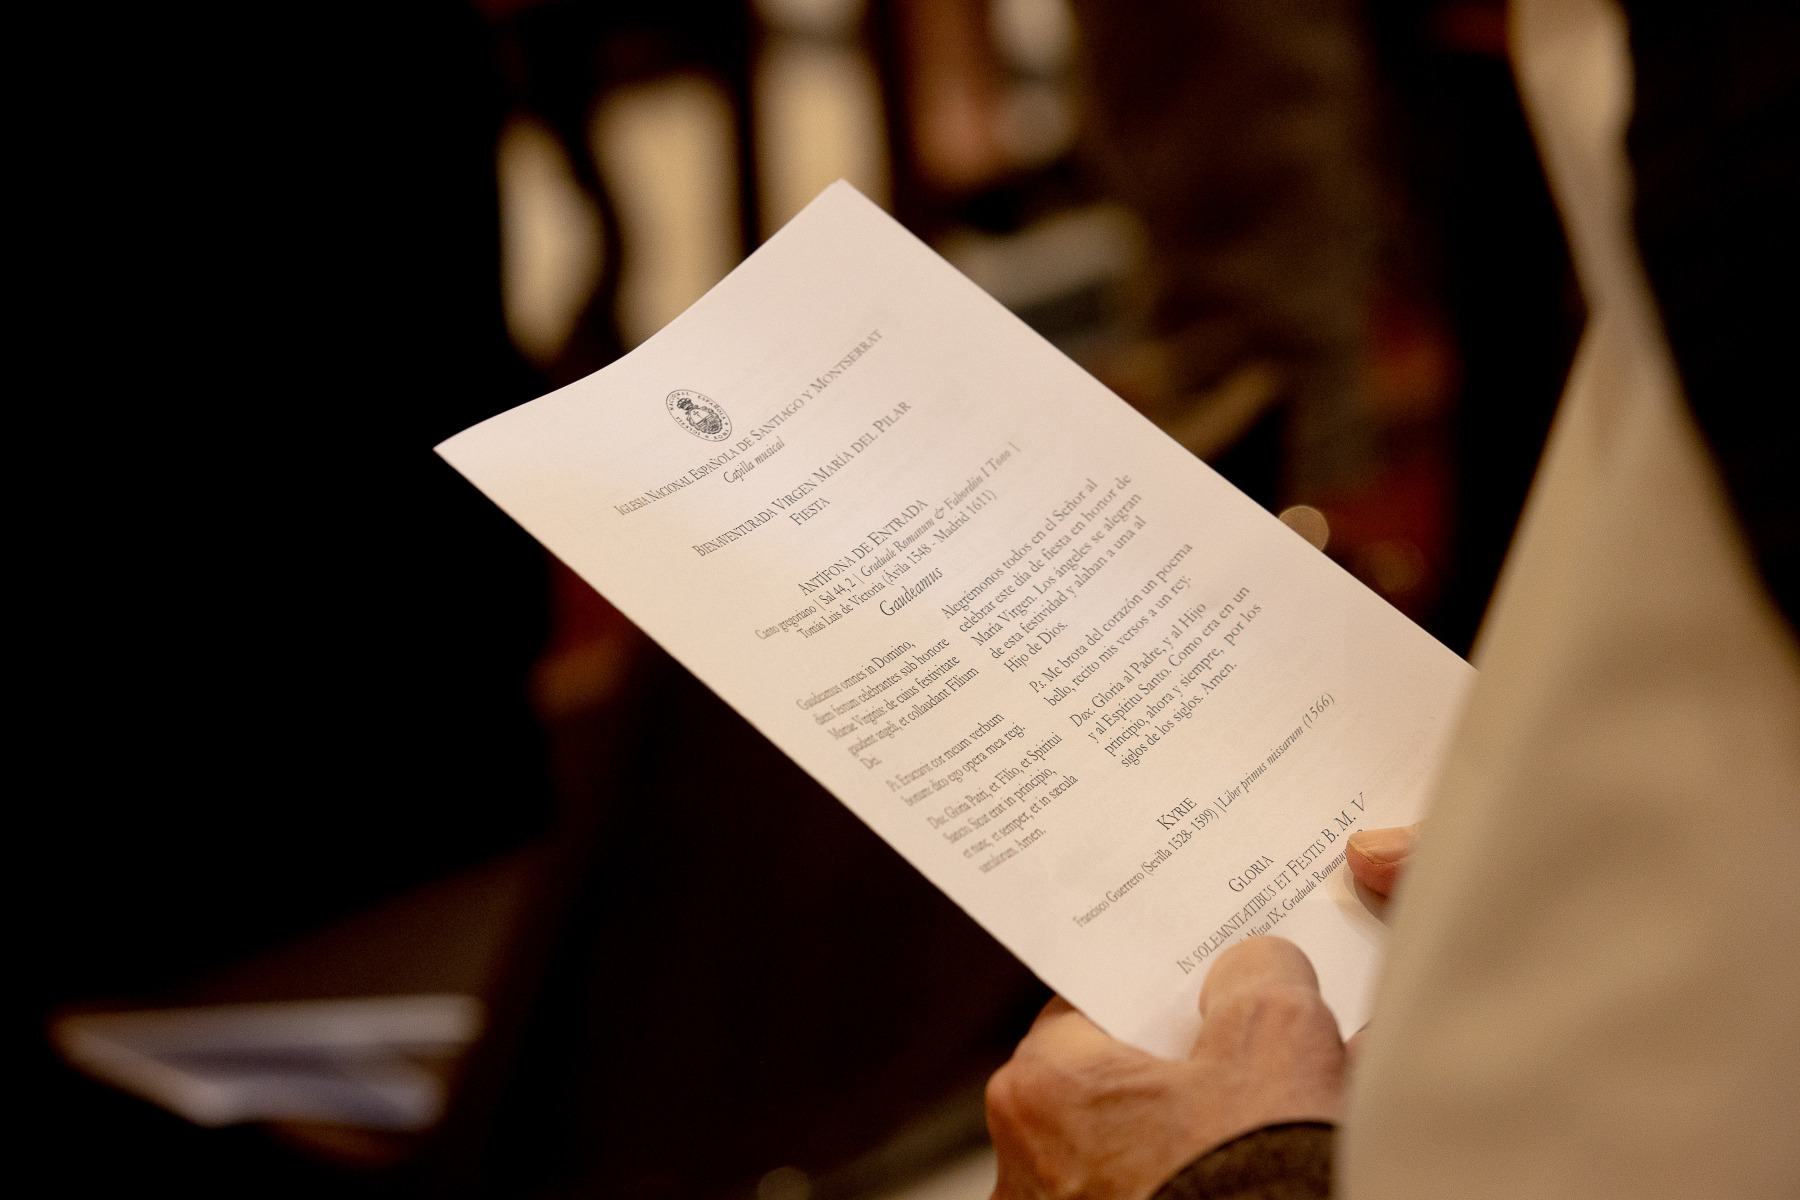 NACIONAL ESPAÑOLA
IGLESIA NACIONAL ESPAÑOLA DE SANTIAGO Y MONTSERRAT
Capilla musical
BIENAVENTURADA VIRGEN MARÍA DEL PILAR
FIESTA
ANTÍFONA DE ENTRADA
Canto gregoriano | Sal 44, 2 | Graduale Romanum & Fabordón I Tono |
Tomás Luis de Victoria (Ávila 1548 - Madrid 1611)
Gaudeamus
Gaudeamus omnes in Domino,
diem festum celebrantes sub honore
Mariae Virginis: de cuius festivitate
gaudent angeli, et collaudant Filium
Dei.
Ps. Eructavit cor meum verbum
bonum: dico ego opera mea regi.
Dox. Glória Patri, et Filio, et Spiritui
Sancto. Sicut erat in principio,
et nunc, et semper, et in sæcula
sæculorum. Amen.
Alegrémonos todos en el Señor al
celebrar este día de fiesta en honor de
María Virgen. Los ángeles se alegran
de esta festividad y alaban a una al
Hijo de Dios.
Ps. Me brota del corazón un poema
bello, recito mis versos a un rey.
Dox. Gloria al Padre, y al Hijo
y al Espíritu Santo. Como era en un
principio, ahora y siempre, por los
siglos de los siglos. Amen.
KYRIE
Francisco Guerrero (Sevilla 1528- 1599) | Liber primus missarum (1566)
GLORIA
IN SOLEMNITATIBUS ET FIESTIS B. M. V
Missa IX, Graduale Romanum